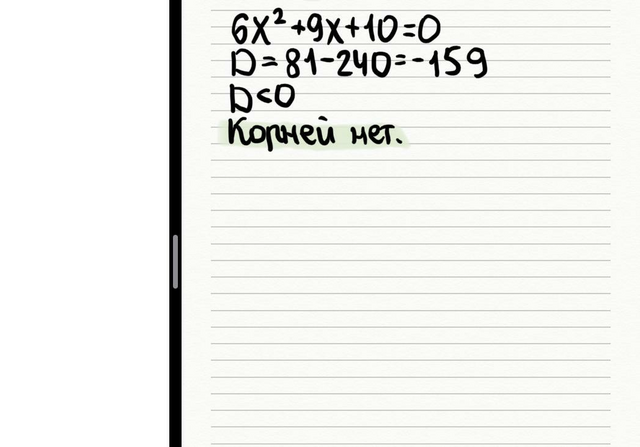 6x²+9x+10=0
D=81-240=-159
D<0
Корней нет.